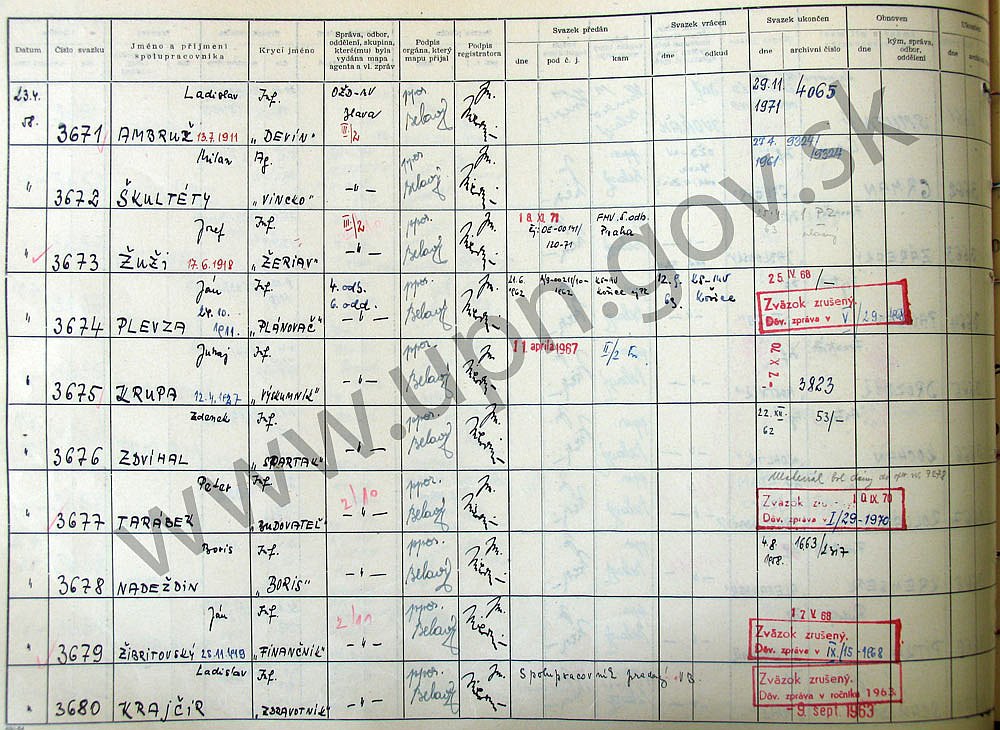 Datum
Číslo svazku
Jméno a příjmení
spolupracovníka
Krycí jméno
Správa, odbor,
oddělení, skupina,
které(mu) byla
vydána mapa
agenta a vl. zpráv
Podpis
orgána, který
mapu přijal
Podpis
registratora
Svazek předán
dne
pod č. j.
kam
Svazek vrácen
dne
odkud
Svazek ukončen
dne
archivní číslo
Obnoven
dne
kým, správa,
odbor,
oddělení
23.4.
58.
3671
Ladislav
AMBRUŽ 13.7.1911
Inf.
"DEVÍN"
Ilava
II/2
ppor.
Belavý
29.11.
1971
4065
"
3672
Milan
ŠKULTÉTY
Ag.
"VINCKO"
-"-
ppor.
Belavý
27.4.
1961
9324/
19324
"
3673
Jozef
ŽUŽI 17.6.1918
Inf.
"ŽERIAV"
III/2
-"-
ppor.
Belavý
18. XI. 71
120-71
FMV. 5. odb.
Praha
"
3674
Ján
PLEVZA
24.10.
1911.
Inf.
"PLÁNOVAČ"
4. odb.
6. odd.
-"-
ppor.
Belavý
21.6.
1962
1962
12.9.
63.
Košice
25. IV. 68
/-
Zväzok zrušený.
Dôv. zpráva v V/29-1968
"
3675
Juraj
KRUPA
Inf.
"VÝKUMNÍK"
-"-
ppor.
Belavý
11 apríla 1967
II/2
-7 X 70
3823
"
3676
Zdenek
ZDVIHAL
Inf.
"SPARTAK"
-"-
ppor.
Belavý
22. XII.
62
53/-
"
3677
Peter
TARABEK
Inf.
"BUDOVATEĽ"
2/10
-"-
ppor.
Belavý
Materiál bol daný do
Zväzok zrušený.
10. IX. 70
Dôv. zpráva v I/29-1970
"
3678
Boris
NADEŽDIN
Inf.
"BORIS"
-"-
ppor.
Belavý
4.8.
1958.
1663/
"
3679
Ján
ŽIBRITOVSKÝ 28.11.1919
Inf.
"FINANČNÍK"
-"-
ppor.
Belavý
17 V. 68
Zväzok zrušený.
Dôv. zpráva v IX/15-1968
"
3680
Ladislav
KRAJČÍR
Inf.
"ZDRAVOTNÍK"
-"-
ppor.
Belavý
Zväzok zrušený.
Dôv. zpráva v ročníku 1963.
-9. sept. 1963
www.upn.gov.sk